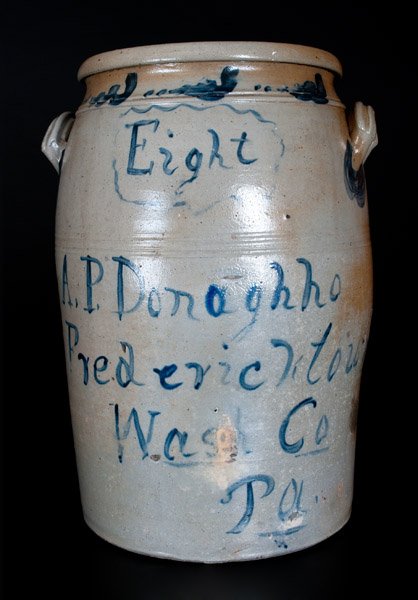 Eight
A.P. Donaghho
Fredericktow
Wash Co
Pa.